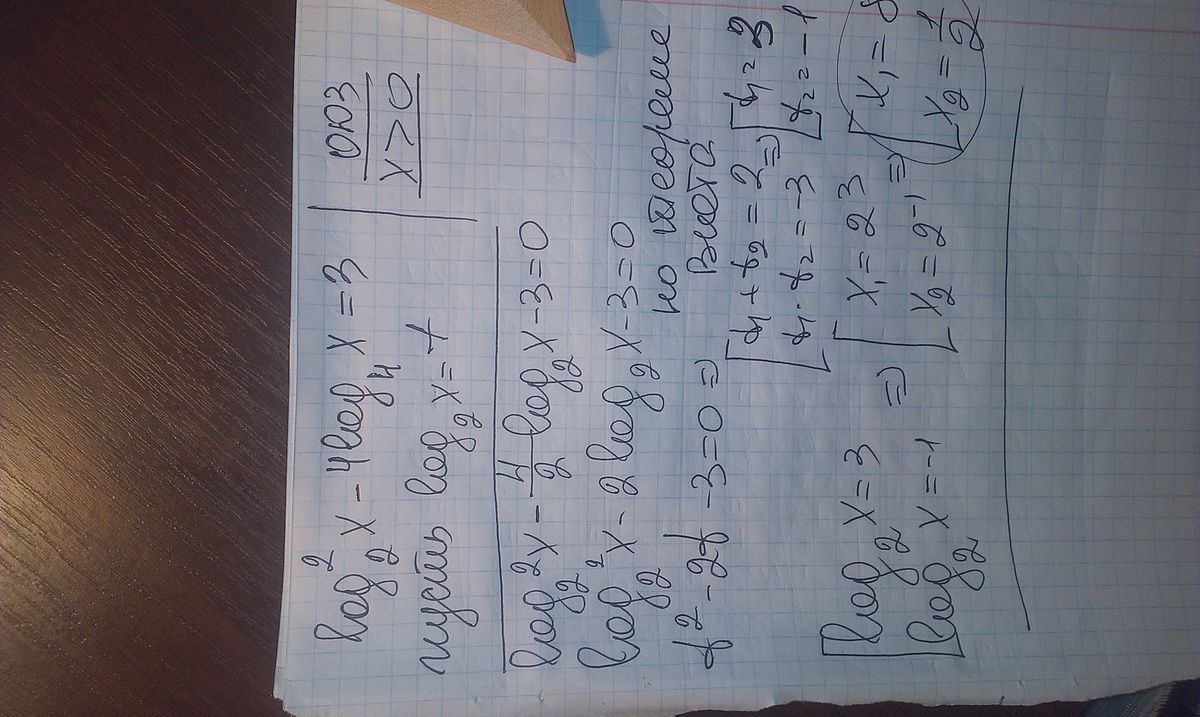 log₂² x - 4 log₄ x = 3 | ОЮЗ
x > 0
пусть log₂ x = t
log₂² x - 4/2 log₂ x - 3 = 0
log₂² x - 2 log₂ x - 3 = 0
t² - 2t - 3 = 0 => по теореме Виета
[ t₁ + t₂ = 2 => [ t₁ = 3
t₁ · t₂ = -3 t₂ = -1
[ log₂ x = 3 => [ x₁ = 2³ => [ x₁ = 8
log₂ x = -1 x₂ = 2⁻¹ x₂ = 1/2